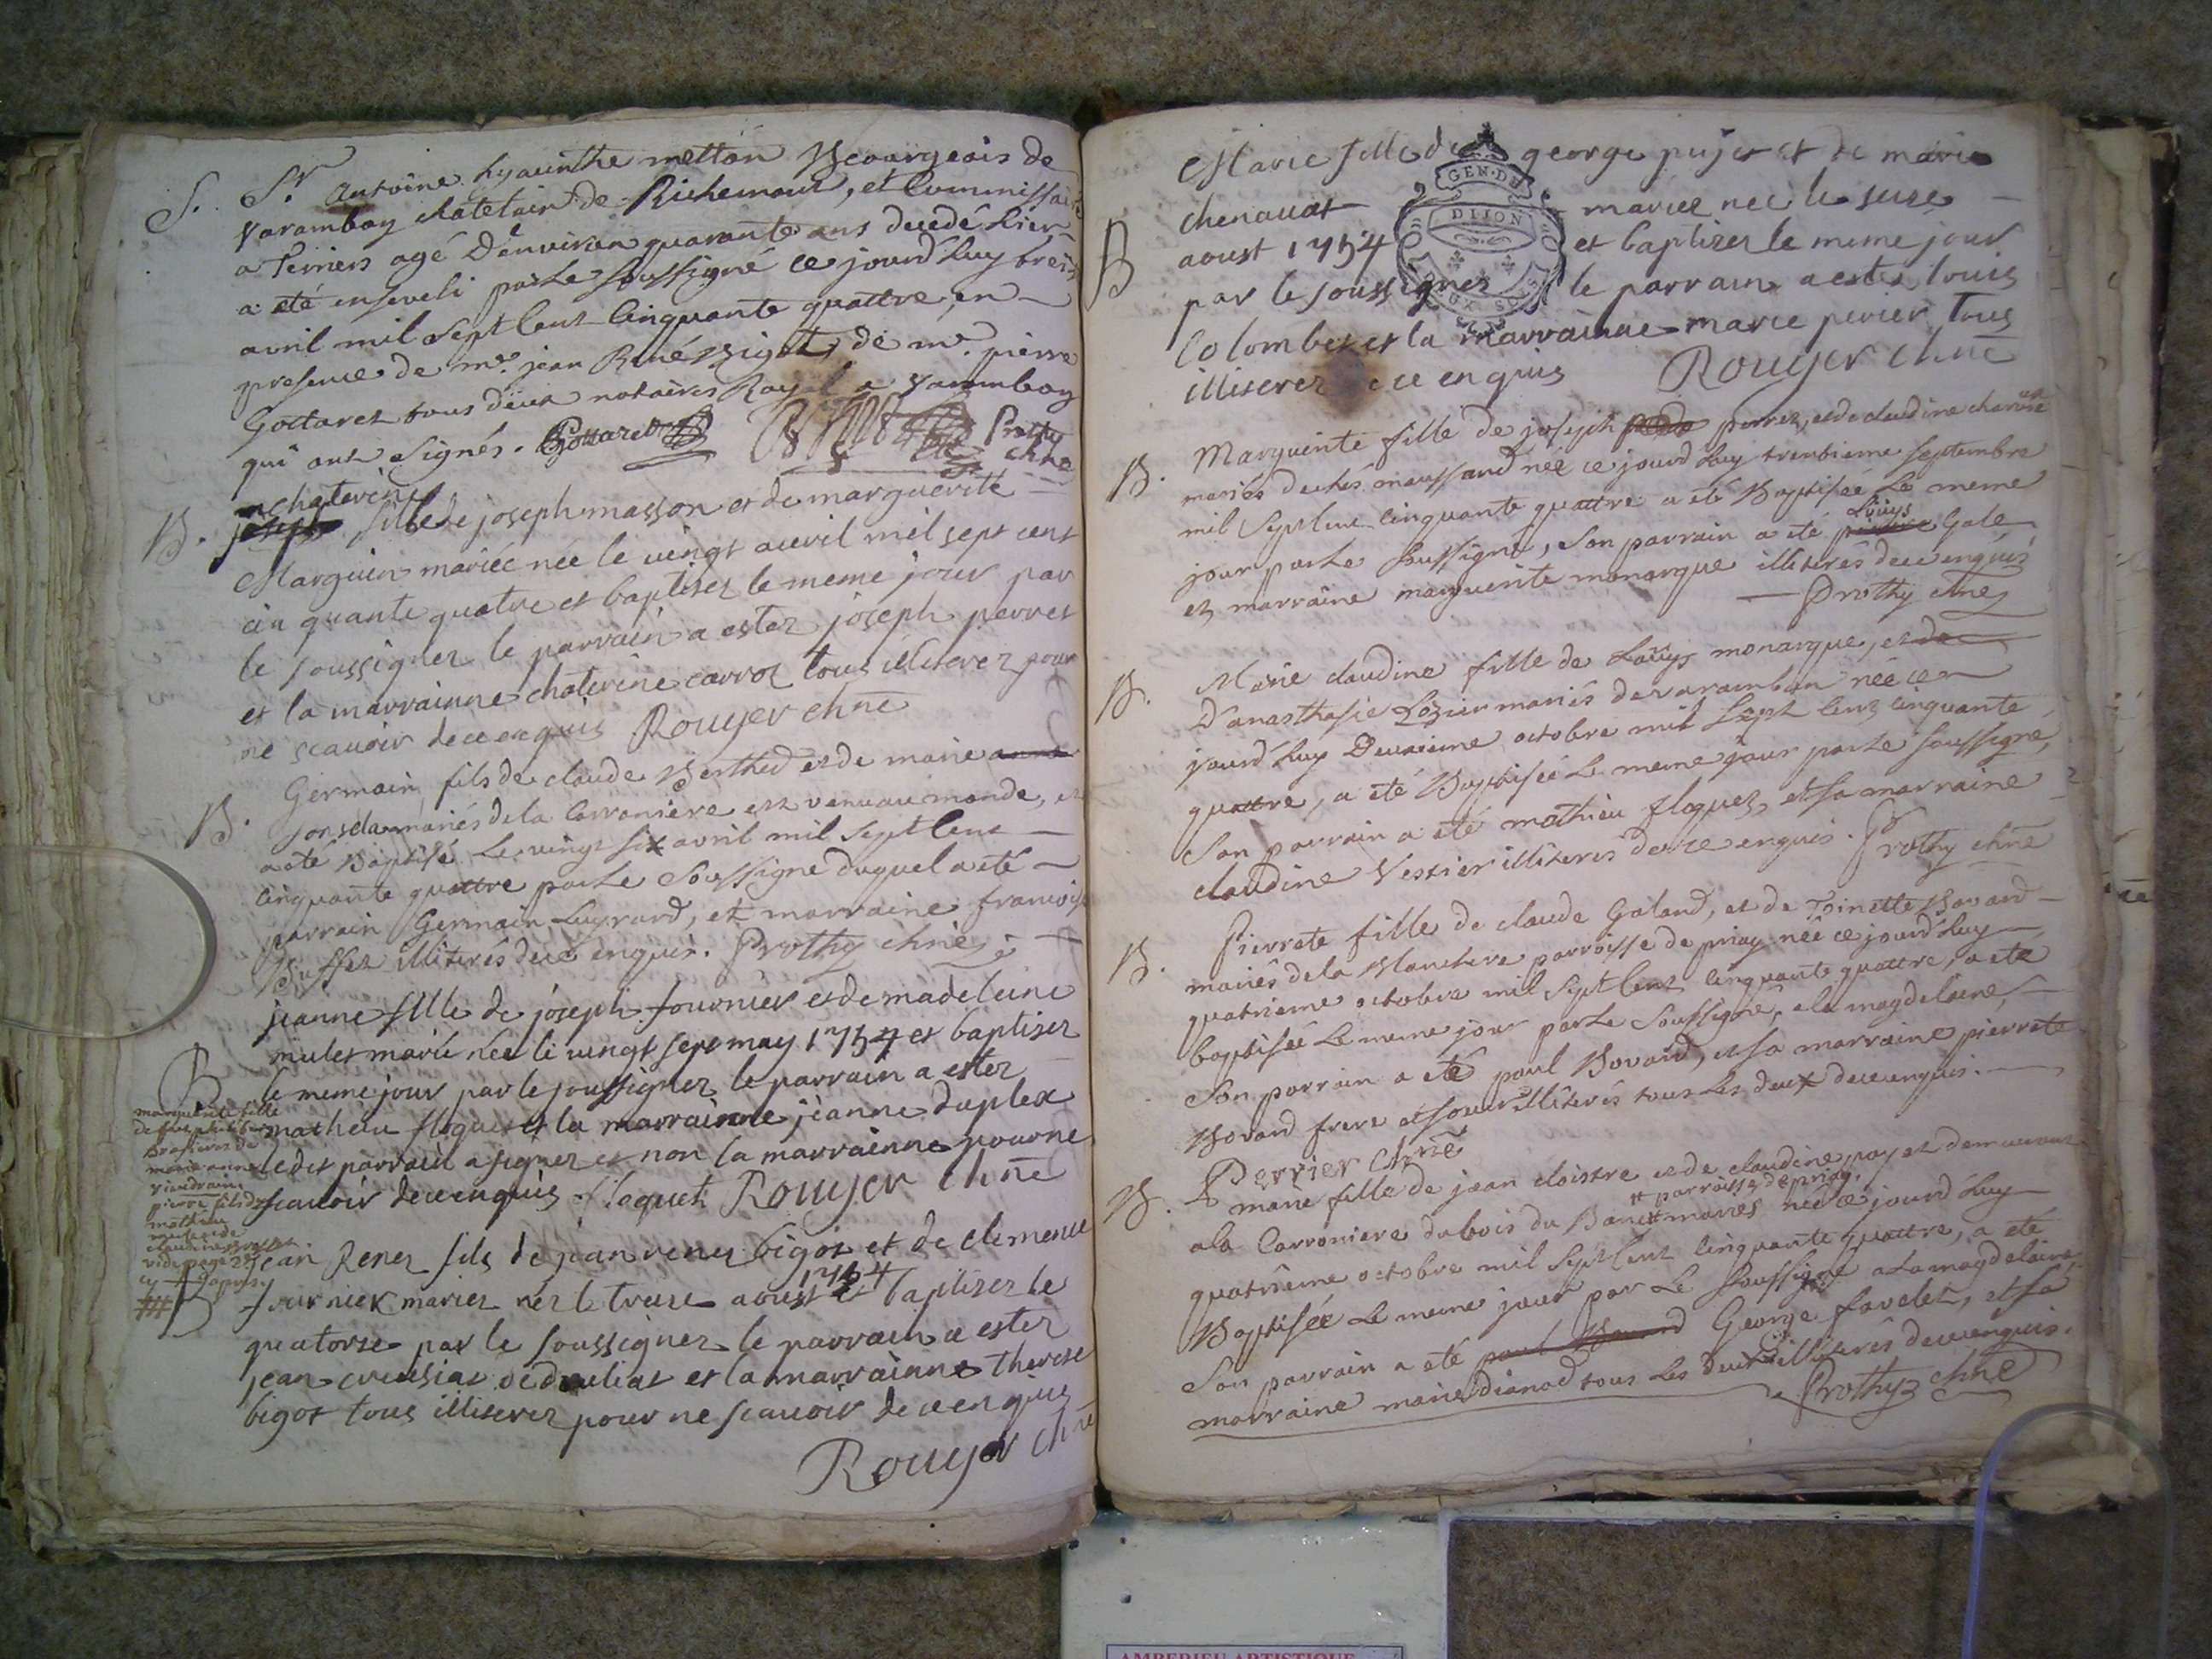 S. Sr Antoine hyacinthe metton Bourgeois de
varambon chatelain de Richemont, et Commissaire
a Terriers agé D'environ quarante ans decedé hier
a été enseveli par Le soussigné ce jourd'huy
avril mil sept cent cinquante quattre, en
presence de me. jean René Bigot, de me. pierre
Gottaret tous deux notaires Royal a varambon
qui ont signés. Gottaret Prothy
chne
chaterine
B. joseph fille de joseph masson et de marguerite
Marguin mariée née le vingt avril mil sept cent
cin quante quatre et baptisez le meme jour par
le soussignez le parrain a ester joseph perret
et la marrainne chaterine carroz tous illiterez pour
ne scavoir de ce enquis Rouyer chne
Germain fils de claude Berthed et de marie
B. mariés de la Carroniere est venu au monde, et
a été Baptisé Le vingt six avril mil sept cent
cinquante quattre par Le soussigné duquel a été
parrain Germain, et marraine francoise
Buffet illiterés de ce enquis. Prothy chne
jeanne fille de joseph fournier et de madeleine
mulet marié née le vingt sept may 1754 et baptisez
B le meme jour par le soussignez le parrain a ester
mathieu floquet et la marrainne jeanne duplex
ledit parrain a signez et non la marrainne pour ne
scavoir de ce enquis. floquet Rouyer chne
marguerite fille
de
marie anne
pierre fils de
mathieu
mulet et de
claudine
vide page 29
jean Renez fils de jean renez bigot et de clemence
1754
B fournier mariez nez le treise aoust et baptisez le
quatorse par le soussignez le parrain a ester
jean creusiat et la marrainne therese
bigot tous illiterez pour ne scavoir de ce enquis
Rouyer chne
Marie fille de george pujet et de marie
GEN. DE
chenavat mariez née le seise
DIJON
B aoust 1754 et baptisez le meme jour
par le soussignez le parrain a ester louis
DEUX SOLS
Colombet et la marrainne marie perier tous
illiterez de ce enquis Rouyer chne
Marguerite fille de joseph perret, et de claudine
B. mariés de née ce jourd'huy trentieme septembre
mil sept cent cinquante quattre a été Baptisée Le meme
Louys
jour par Le soussigné, son parrain a été pierre Gale
et marraine marguerite monarque illiterés de ce enquis
Prothy chne
Marie claudine fille de Louys monarque, et de
B. D'anasthasie Lozier mariés de varambon née ce
jourd'huy Deuxieme octobre mil sept cent cinquante
quattre, a été Baptisée Le meme jour par Le soussigné,
son parrain a été mathieu floquet, et sa marraine
claudine Vessier illiterés de ce enquis. Prothy chne
Pierrete fille de claude Galand, et de Toinette Bovard
B. mariés de la parroisse de priay née ce jourd'huy
quatrieme octobre mil sept cent cinquante quattre, a été
baptisée Le meme jour par Le soussigné, a la magdelaine,
son parrain a été paul Bovard, et sa marraine pierrete
Bovard frere et soeur illiterés tous Les deux de ce enquis.
Perrier chne
B. marie fille de jean cloistre et de claudine demeurant
# parroisse de priay,
a la Carroniere du bois du Banc # mariés née ce jourd'huy
quatrieme octobre mil sept cent cinquante quattre, a été
Baptisée Le meme jour par Le soussigné a La magdelaine
son parrain a été paul Bovard George favelet, et sa
marraine marie dianod tous Les deux illiterés de ce enquis.
Prothy chne
AMBERIEU ARTISTIQUE